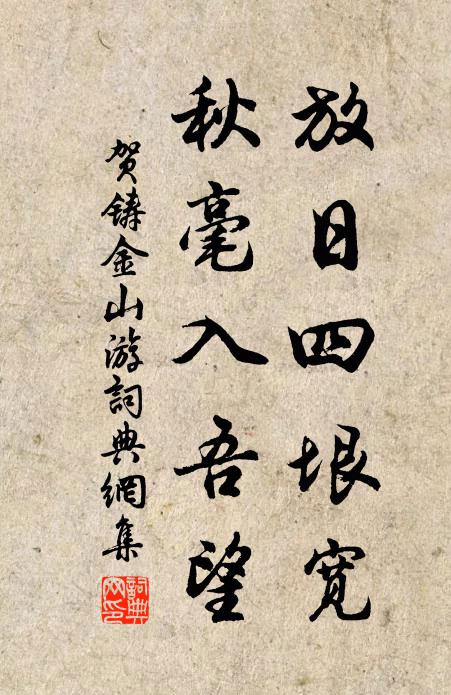 放日四垠寬
秋毫入吾望
贺鑄金山游詞典網集
詞典网印